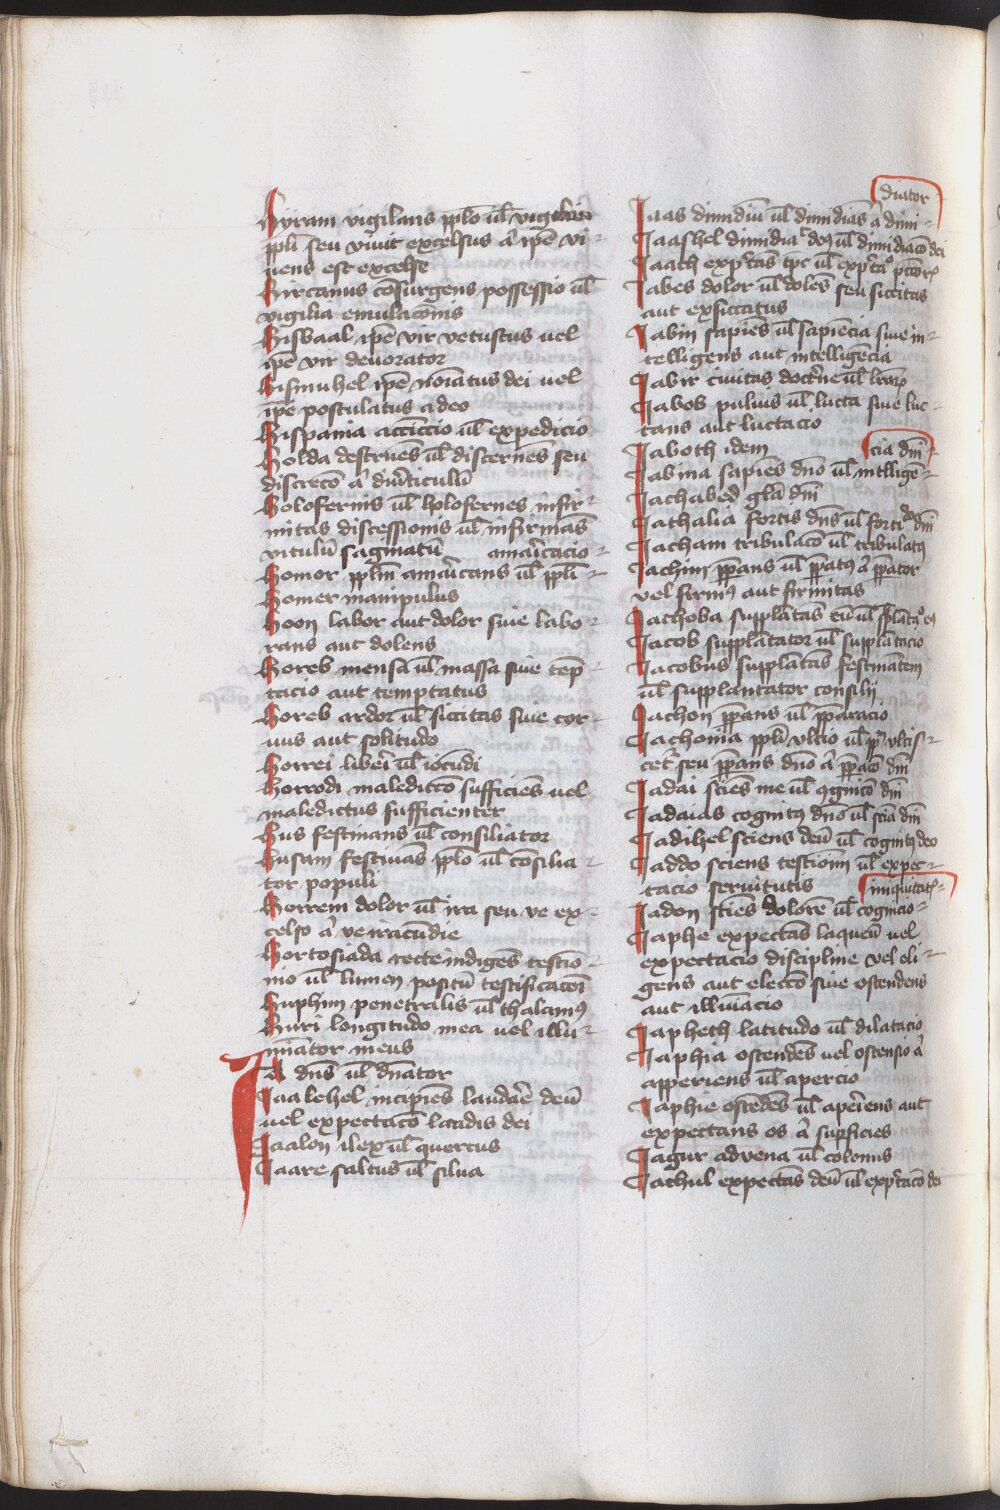 Hyram vigilans pplo ul' vigilia
ppli seu vivit excelsus a' ipe vi-
vens est excelse
Hircanus consurgens possessio ul'
vigilia emulaconis
Hisbaal ipe vir vetustus uel
ipe vir deuorator
Hismuhel ipe noiatus dei uel
ipe postulatus a deo
Hispania accinccio ul' expedicio
Holda destruens ul' discernens seu
discreco a' diverticulu
Holofernis ul' holofernes infir-
mitas discessionis ul' infirmans
vitulu saginatu amaricacio-
Homor pplm amaricans ul' ppli-
Homer manipulus
Hoon labor aut dolor siue labo-
rans aut dolens
Horeb mensa ul' massa siue temp-
tacio aut temptatus
Horeb ardor ul' siccitas siue cor-
uus aut solitudo
Horrei liberi ul' iocundi
Horrodi maledicco sufficiens uel
maledictus sufficienter
Hus festinans ul' consiliator
Husam festinans pplo ul' consilia-
tor populi
Horrem dolor ul' ira seu ve ex-
celso a' ve iracundie
Hortosiada recte indigens testio-
nio ul' lumen positu testificacoi
Huphim penetralis ul' thalamus
Huri longitudo mea uel illu-
minator meus
Ia dns ul' dnator
Iaalehel incipiens laudare deu
uel expectaco laudis dei
Iaalon ilex ul' quercus
Iaare saltus ul' silua
diator
Iaas dimidiu ul' dimidias a' dimi-
Iaashel dimidiat deus ul' dimidiaco dei
Iaach expectas tpc ul' expectatio pctorum
Iabes dolor ul' dolens seu siccitas
aut exsiccatus
Iabin sapiens ul' sapiencia siue in-
telligens aut intelligencia
Iabir ciuitas doctrine ul' lrarum
Iabob puluis ul' lucta siue luc-
tans aut luctacio
Iaboth idem cia dm
Iabina sapiens dno ul' intlligen-
Iachabed gla dm
Iathalia fortis dns ul' fortido dm
Iacham tribulaco ul' tribulatus
Iachim pparans ul' pparatus a' pparator
vel firmus aut firmitas
Iachoba supplantans eu ul' splantatio eius
Iacob supplantator ul' supplantacio
Iacobus supplantans festinantem
ul' supplantator consilij
Iachon pparans ul' pparacio
Iachonia ppli vlcio ul' pr vltis-
cet seu pparans dno a' pparaco dm
Iadai sciens me ul' cognico dm
Iadaias cognitus dno ul' scia dm
Iadihel sciens deu ul' cognitus deo
Iaddo sciens testioim ul' expec-
tacio seruitutis iniquitatis-
Iadon sciens dolore ul' cognicio-
Iaphe expectans laqueu uel
expectacio discipline vel eli-
gens aut elecco siue ostendens
aut illuiacio
Iapheth latitudo ul' dilatacio
Iaphia ostendens uel ostensio a'
apperiens ul' apercio
Iaphie ostendens ul' aperiens aut
expectans os a' supficies
Iagur advena ul' colonus
Iathul expectans deu ul' expectaco dei